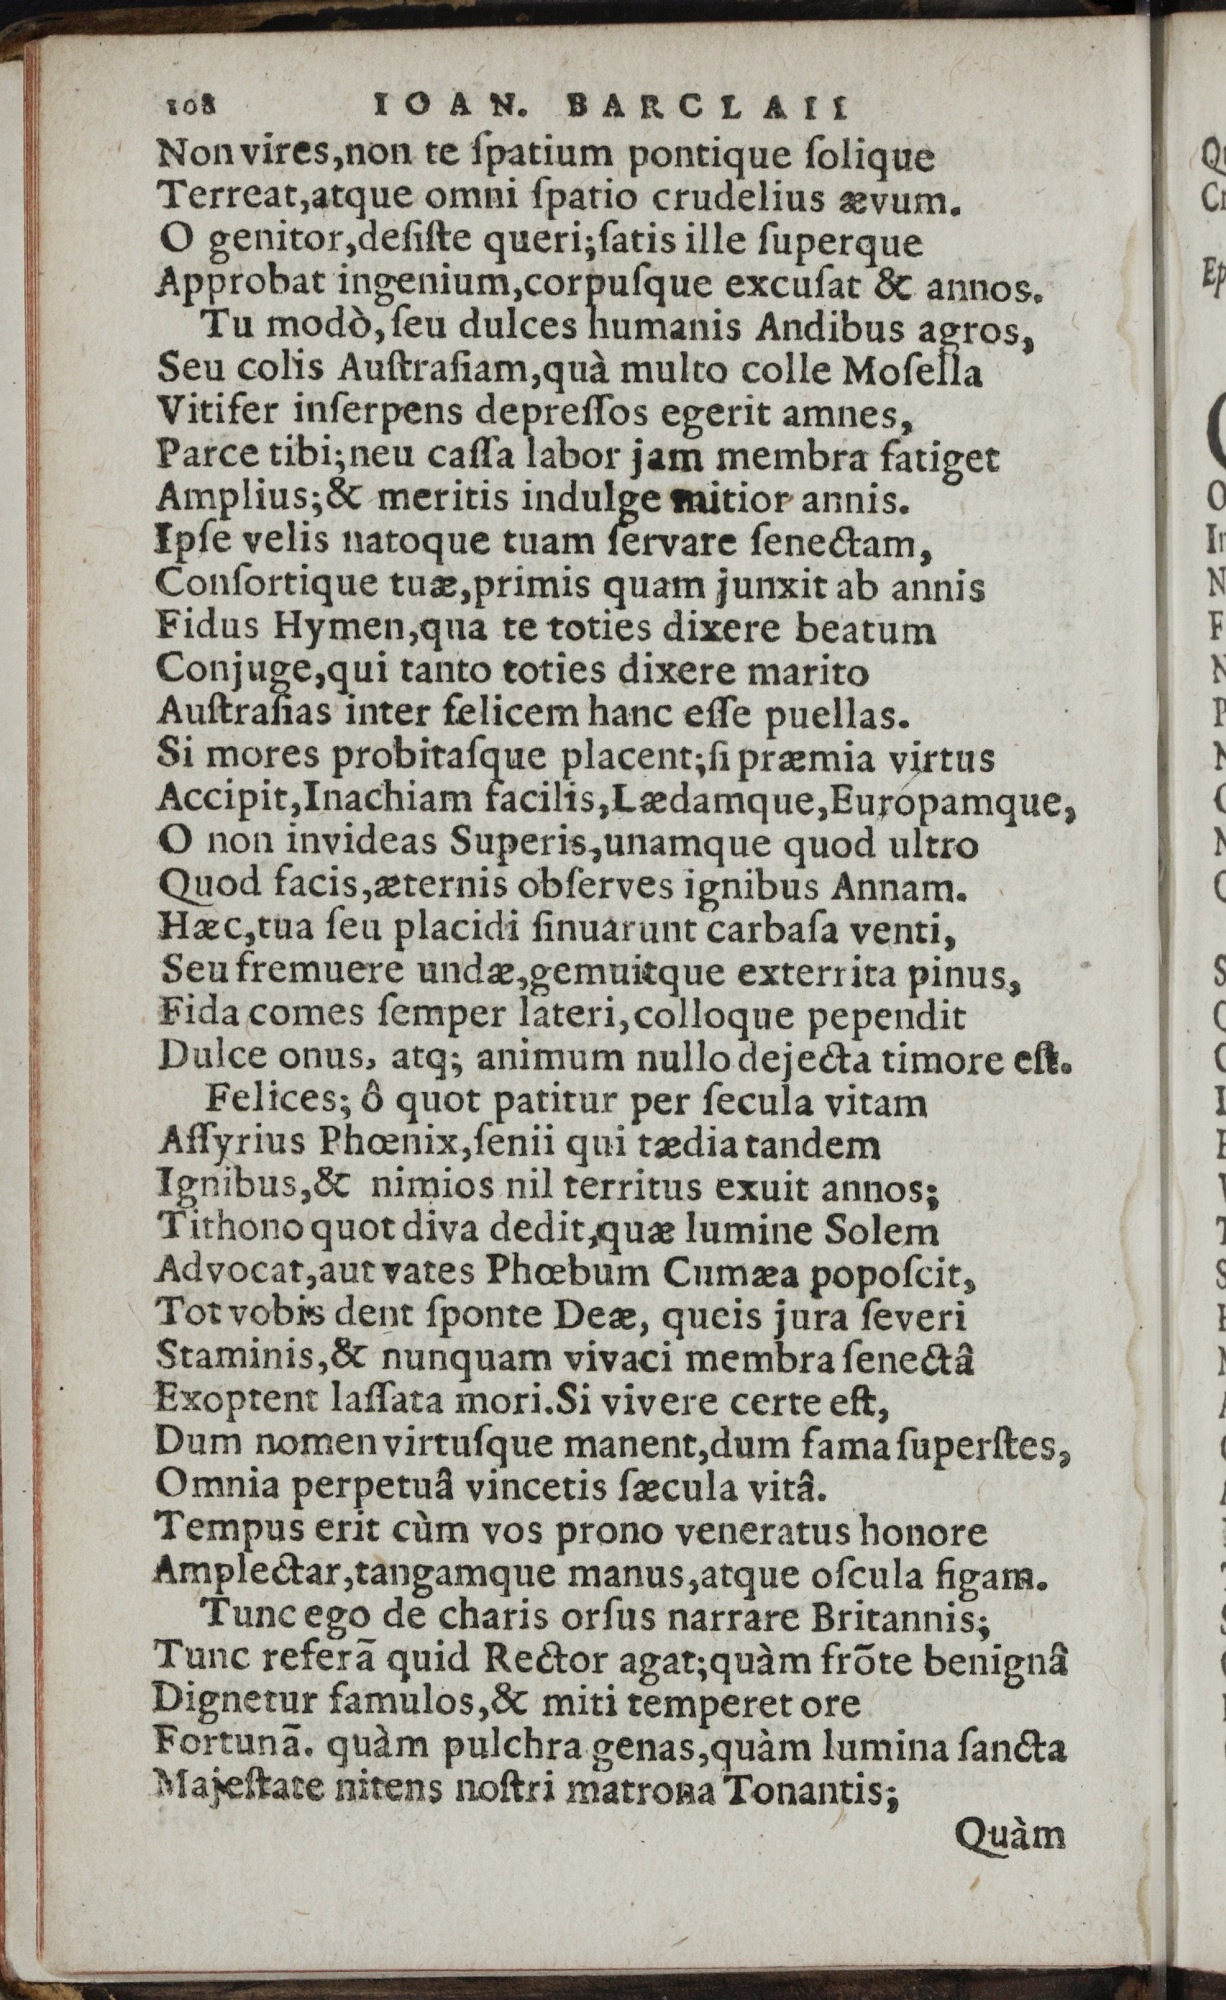 108 IOAN. BARCLAII
Non vires, non te ſpatium pontique ſolique
Terreat, atque omni ſpatio crudelius ævum.
O genitor, deſiſte queri; ſatis ille ſuperque
Approbat ingenium, corpuſque excuſat & annos.
Tu modò, ſeu dulces humanis Andibus agros,
Seu colis Auſtraſiam, quà multo colle Moſella
Vitifer inſerpens depreſſos egerit amnes,
Parce tibi; neu caſſa labor jam membra fatiget
Amplius; & meritis indulge mitior annis.
Ipſe velis natoque tuam ſervare ſenectam,
Conſortique tuæ, primis quam junxit ab annis
Fidus Hymen, qua te toties dixere beatum
Conjuge, qui tanto toties dixere marito
Auſtraſias inter felicem hanc eſſe puellas.
Si mores probitaſque placent; ſi præmia virtus
Accipit, Inachiam facilis, Lædamque, Europamque,
O non invideas Superis, unamque quod ultro
Quod facis, æternis obſerves ignibus Annam.
Hæc, tua ſeu placidi ſinuarunt carbaſa venti,
Seu fremuere undæ, gemuitque exterrita pinus,
Fida comes ſemper lateri, colloque pependit
Dulce onus, atq; animum nullo dejecta timore eſt.
Felices; ô quot patitur per ſecula vitam
Aſſyrius Phœnix, ſenii qui tædia tandem
Ignibus, & nimios nil territus exuit annos;
Tithono quot diva dedit, quæ lumine Solem
Advocat, aut vates Phœbum Cumæa popoſcit,
Tot vobis dent ſponte Deæ, queis jura ſeveri
Staminis, & nunquam vivaci membra ſenectâ
Exoptent laſſata mori. Si vivere certe eſt,
Dum nomen virtuſque manent, dum fama ſuperſtes,
Omnia perpetuâ vincetis ſæcula vitâ.
Tempus erit cùm vos prono veneratus honore
Amplectar, tangamque manus, atque oſcula figam.
Tunc ego de charis orſus narrare Britannis;
Tunc referã quid Rector agat; quàm frõte benignâ
Dignetur famulos, & miti temperet ore
Fortunã. quàm pulchra genas, quàm lumina ſancta
Majeſtate nitens noſtri matrona Tonantis;
Quàm